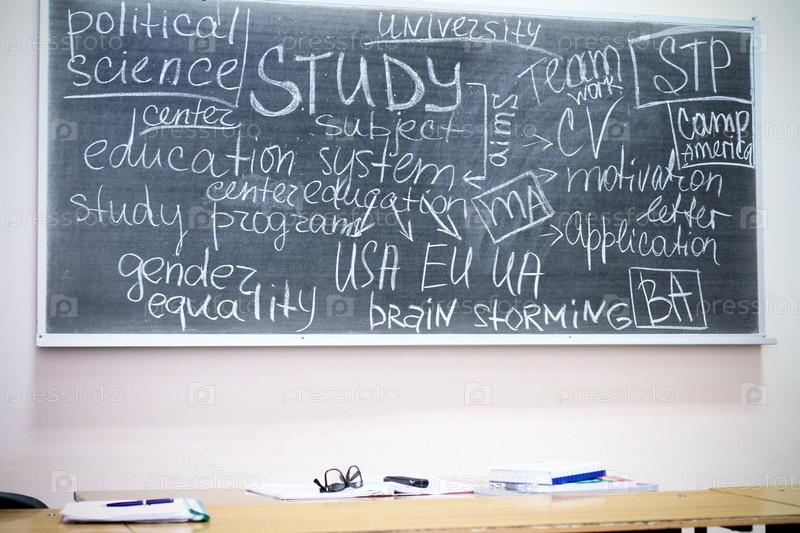 political
science
university
STUDY
Team
work
STP
center
subject
aims
CV
Camp
America
education system
motivation
letter
center education
MA
study programs
application
gender
equality
USA EU UA
brain storming
BA
pressfoto